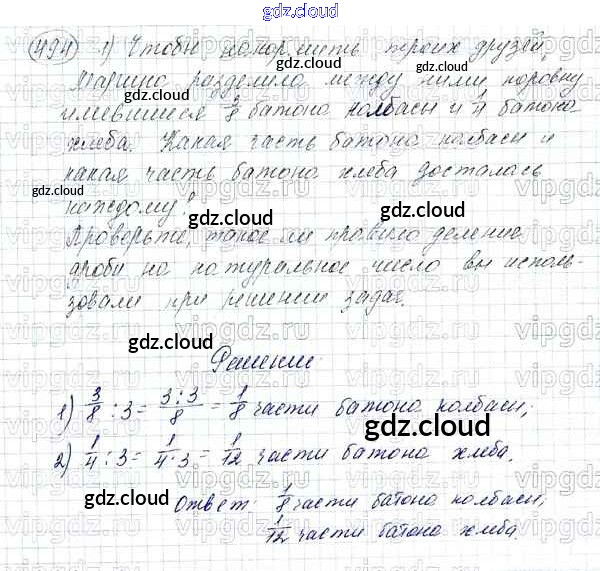 gdz.cloud
494 1) Чтобы накормить троих друзей,
Марина разделила между ними поровну
имевшиеся 3/8 батона колбасы и 1/4 батона
хлеба. Какая часть батона колбасы и
какая часть батона хлеба досталась
каждому?
Проверьте, такое ли правило деление
дроби на натуральное число вы исполь-
зовали при решении задач.
Решение:
1) 3/8 : 3 = 3:3/8 = 1/8 части батона колбасы;
2) 1/4 : 3 = 1/4·3 = 1/12 части батона хлеба.
Ответ: 1/8 части батона колбасы;
1/12 части батона хлеба.